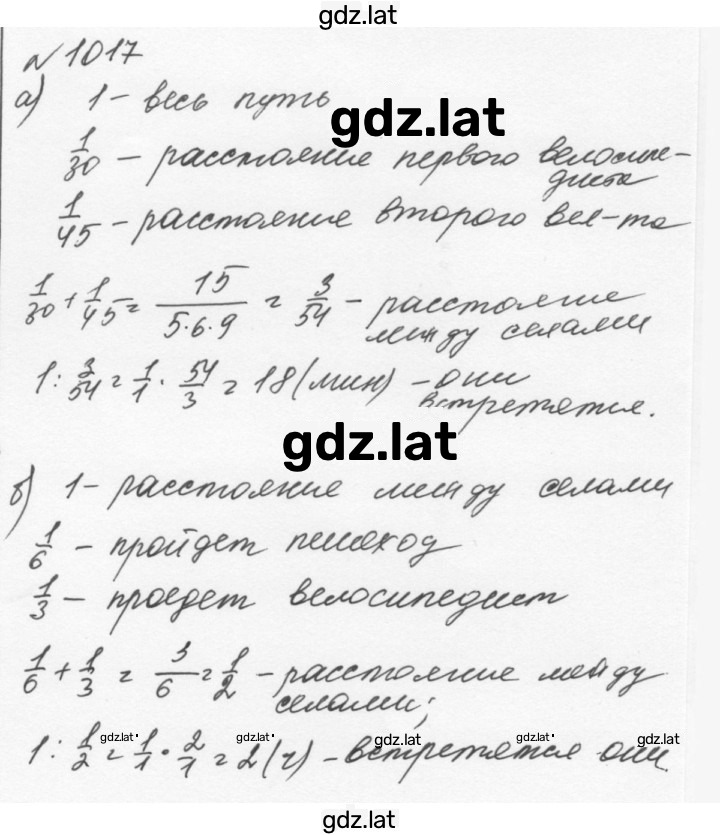 gdz.lat
№ 1017
а) 1 - весь путь
gdz.lat
1/30 - расстояние первого велосипе-
диста
1/45 - расстояние второго вел-та
1/30 + 1/45 = 15/(5·6·9) = 3/54 - расстояние
между селами
1 : 3/54 = 1/1 · 54/3 = 18 (мин) - они
встретятся.
gdz.lat
б) 1 - расстояние между селами
1/6 - пройдет пешеход
1/3 - проедет велосипедист
1/6 + 1/3 = 3/6 = 1/2 - расстояние между
селами;
1 : 1/2 = 1/1 · 2/1 = 2 (ч) - встретятся они.
gdz.lat gdz.lat gdz.lat gdz.lat
gdz.lat